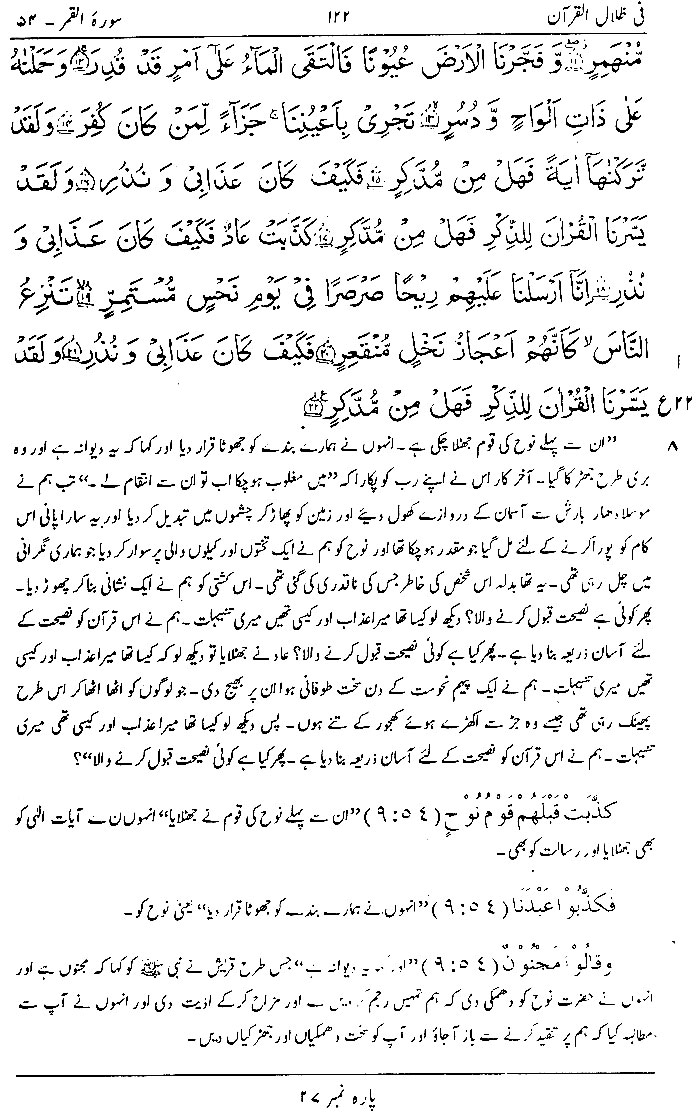 فی ظلال القرآن ۱۲۲ سورۂ القمر ۔ ۵۴
مُّنْهَمِرٍ ۝۱۱ وَّ فَجَّرْنَا الْاَرْضَ عُیُوْنًا فَالْتَقَی الْمَآءُ عَلٰۤی اَمْرٍ قَدْ قُدِرَ ۝۱۲ وَ حَمَلْنٰهُ
عَلٰی ذَاتِ اَلْوَاحٍ وَّ دُسُرٍ ۝۱۳ تَجْرِیْ بِاَعْیُنِنَا ۚ جَزَآءً لِّمَنْ كَانَ كُفِرَ ۝۱۴ وَ لَقَدْ
تَّرَكْنٰهَاۤ اٰیَةً فَهَلْ مِنْ مُّدَّكِرٍ ۝۱۵ فَكَیْفَ كَانَ عَذَابِیْ وَ نُذُرِ ۝۱۶ وَ لَقَدْ
یَسَّرْنَا الْقُرْاٰنَ لِلذِّكْرِ فَهَلْ مِنْ مُّدَّكِرٍ ۝۱۷ كَذَّبَتْ عَادٌ فَكَیْفَ كَانَ عَذَابِیْ وَ
نُذُرِ ۝۱۸ اِنَّاۤ اَرْسَلْنَا عَلَیْهِمْ رِیْحًا صَرْصَرًا فِیْ یَوْمِ نَحْسٍ مُّسْتَمِرٍّ ۝۱۹ تَنْزِعُ
النَّاسَ ۙ كَاَنَّهُمْ اَعْجَازُ نَخْلٍ مُّنْقَعِرٍ ۝۲۰ فَكَیْفَ كَانَ عَذَابِیْ وَ نُذُرِ ۝۲۱ وَ لَقَدْ
یَسَّرْنَا الْقُرْاٰنَ لِلذِّكْرِ فَهَلْ مِنْ مُّدَّكِرٍ ۝۲۲ ع ۲۲
۸
”ان سے پہلے نوح کی قوم جھٹلا چکی ہے۔ انہوں نے ہمارے بندے کو جھوٹا قرار دیا اور کہا کہ یہ دیوانہ ہے اور وہ
بری طرح جھڑکا گیا۔ آخر کار اس نے اپنے رب کو پکارا کہ ”میں مغلوب ہوچکا اب تو ان سے انتقام لے۔“ تب ہم نے
موسلادھار بارش سے آسمان کے دروازے کھول دیئے اور زمین کو پھاڑ کر چشموں میں تبدیل کر دیا اور یہ سارا پانی اس
کام کو پورا کرنے کے لئے مل گیا جو مقدر ہوچکا تھا اور نوح کو ہم نے ایک تختوں اور کیلوں والی پر سوار کر دیا جو ہماری نگرانی
میں چل رہی تھی۔ یہ تھا بدلہ اس شخص کی خاطر جس کی ناقدری کی گئی تھی۔ اس کشتی کو ہم نے ایک نشانی بنا کر چھوڑ دیا۔
پھر کوئی ہے نصیحت قبول کرنے والا؟ دیکھ لو کیسا تھا میرا عذاب اور کیسی تھیں میری تنبیہات۔ ہم نے اس قرآن کو نصیحت کے
لئے آسان ذریعہ بنا دیا ہے۔ پھر کیا ہے کوئی نصیحت قبول کرنے والا؟ عاد نے جھٹلایا تو دیکھ لو کہ کیسا تھا میرا عذاب اور کیسی
تھیں میری تنبیہات۔ ہم نے ایک پیہم نحوست کے دن سخت طوفانی ہوا ان پر بھیج دی۔ جو لوگوں کو اٹھا اٹھا کر اس طرح
پھینک رہی تھی جیسے وہ جڑ سے اکھڑے ہوئے کھجور کے تنے ہوں۔ پس دیکھ لو کیسا تھا میرا عذاب اور کیسی تھی میری
تنبیہات۔ ہم نے اس قرآن کو نصیحت کے لئے آسان ذریعہ بنا دیا ہے۔ پھر کیا ہے کوئی نصیحت قبول کرنے والا“؟
كَذَّبَتْ قَبْلَهُمْ قَوْمُ نُوْحٍ (۵۴ : ۹) ”ان سے پہلے نوح کی قوم نے جھٹلایا“ انہوں نے آیات الٰہی کو
بھی جھٹلایا اور رسالت کو بھی۔
فَكَذَّبُوْا عَبْدَنَا (۵۴ : ۹) ”انہوں نے ہمارے بندے کو جھوٹا قرار دیا“ یعنی نوح کو۔
وَقَالُوْا مَجْنُوْنٌ (۵۴ : ۹) ”اور کہا یہ دیوانہ ہے“ جس طرح قریش نے نبی ﷺ کو کہا کہ مجنوں ہے اور
انہوں نے حضرت نوح کو دھمکی دی کہ ہم تمہیں رجم کر دیں گے اور مزاح کر کے اذیت دی اور انہوں نے آپ سے
مطالبہ کیا کہ ہم پر تنقید کرنے سے باز آجاؤ اور آپ کو سخت دھمکیاں اور جھڑکیاں دیں۔
پارہ نمبر ۲۷